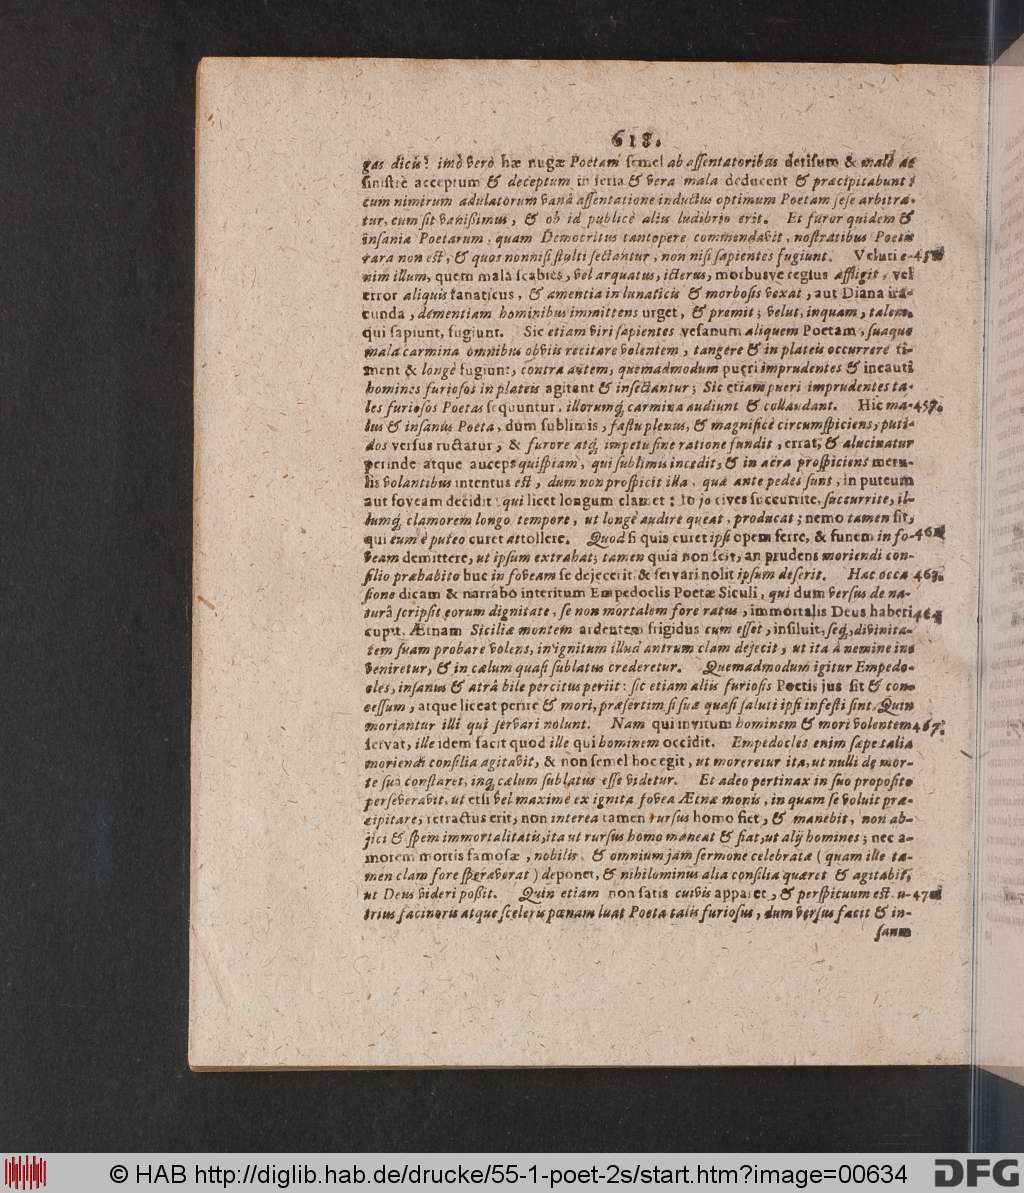 618.
gas dicis? imò verò hæ nugæ Poetam semel ab assentatoribus derisum & malè ac
sinistrè acceptum & deceptum in seria & vera mala deducent & præcipitabunt:
cum nimirum adulatorum vanâ assentatione inductus optimum Poetam sese arbitra-
tur, cum sit vanissimus, & ob id publicè aliis ludibrio erit. Et furor quidem &
insania Poetarum, quam Democritus tantopere commendavit, nostratibus Poetis
rara non est, & quos nonnisi stulti sectantur, non nisi sapientes fugiunt. Veluti e-
nim illum, quem mala scabies, vel arquatus, icterus, morbusve regius affligit, vel
error aliquis fanaticus, & amentia in lunaticis & morbosis vexat, aut Diana ira-
cunda, dementiam hominibus immittens urget, & premit; velut, inquam, talem,
qui sapiunt, fugiunt. Sic etiam viri sapientes vesanum aliquem Poetam, suaque
mala carmina omnibus obviis recitare volentem, tangere & in plateis occurrere ti-
ment & longè fugiunt, contra autem, quemadmodum pueri imprudentes & incauti
homines furiosos in plateis agitant & insectantur; Sic etiam pueri imprudentes ta-
les furiosos Poetas sequuntur, illorumq; carmina audiunt & collaudant. Hic ma- 457.
lus & insanus Poeta, dum sublimis, fastu plenus, & magnificè circumspiciens, puti-
dos versus ructatur, & furore atq; impetu sine ratione fundit, errat, & alucinatur
perinde atque auceps quispiam, qui sublimis incedit, & in aëra prospiciens meru-
lis volantibus intentus est, dum non prospicit illa, quæ ante pedes sunt, in puteum
aut foveam decidit: qui licet longum clamet: Io jo cives succurrite, succurrite, il-
lumq; clamorem longo tempore, ut longè audire queat, producat; nemo tamen sit,
qui eum è puteo curet attollere. Quod si quis curet ipsi opem ferre, & funem in fo-
veam demittere, ut ipsum extrahat; tamen quia non scit, an prudens moriendi con-
silio præhabito huc in foveam se dejecerit & servari nolit ipsum deserit. Hac occa 463.
sione dicam & narrabo interitum Empedoclis Poetæ Siculi, qui dum versus de na-
turâ scripsit eorum dignitate, se non mortalem fore ratus, immortalis Deus haberi 464
cupit. Ætnam Siciliæ montem ardentem frigidus cum esset, insiluit, seq; divinita-
tem suam probare volens, in ignitum illud antrum clam dejecit, ut ita à nemine in-
veniretur, & in cælum quasi sublatus crederetur. Quemadmodum igitur Empedo-
cles, insanus & atrâ bile percitus periit: sic etiam aliis furiosis Poetis jus sit & con-
cessum, atque liceat perire & mori, præsertim si suæ quasi saluti ipsi infesti sint. Quin
moriantur illi qui servari nolunt. Nam qui invitum hominem & mori volentem 467.
servat, ille idem facit quod ille qui hominem occidit. Empedocles enim sæpe talia
moriendi consilia agitavit, & non semel hoc egit, ut moreretur ita, ut nulli de mor-
te sua constaret, inq; cælum sublatus esse videtur. Et adeo pertinax in suo proposito
perseveravit, ut etsi vel maximè ex ignita fovea Ætnæ montis, in quam se voluit præ-
cipitare, retractus erit, non interea tamen rursus homo fiet, & manebit, non ab-
jici & spem immortalitatis, ita ut rursus homo maneat & fiat, ut alij homines; nec a-
morem mortis famosæ, nobilis, & omnium jam sermone celebratæ (quam ille ta-
men clam fore speraverat) deponet, & nihilominus alia consilia quæret & agitabit,
ut Deus videri possit. Quin etiam non satis cuivis apparet, & perspicuum est, u-
trius facinoris atque sceleris pœnam luat Poeta talis furiosus, dum versus facit & in-
sanus
© HAB http://diglib.hab.de/drucke/55-1-poet-2s/start.htm?image=00634
DFG